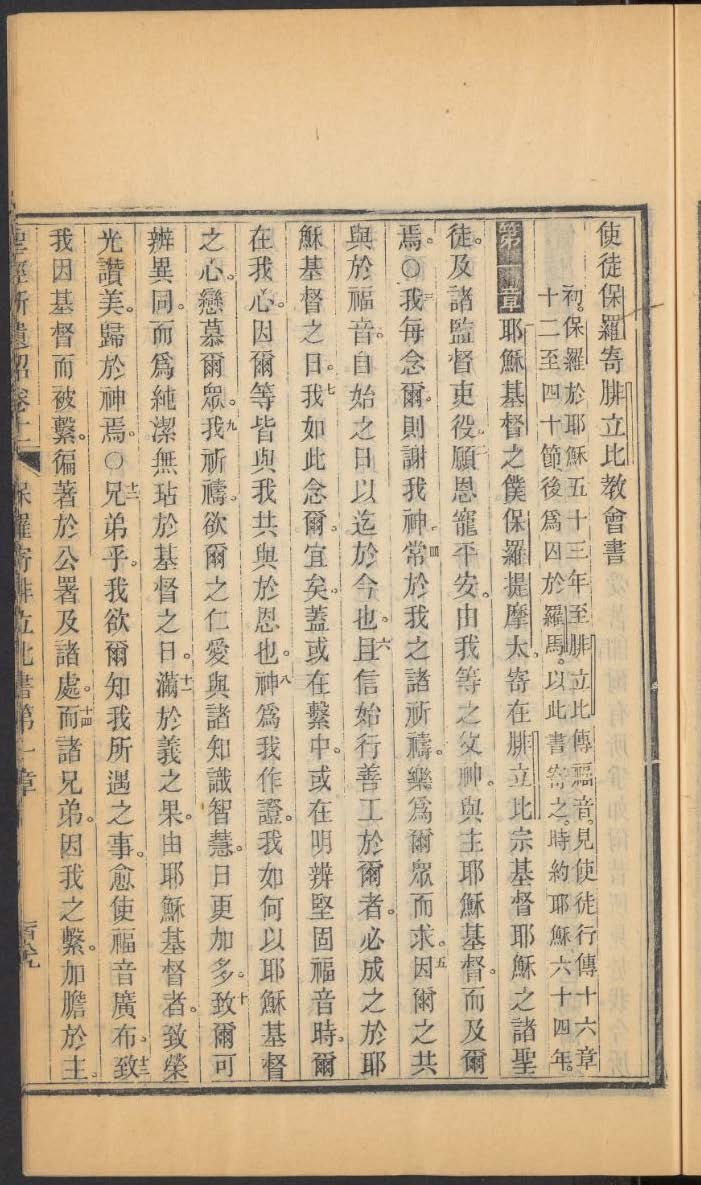 使徒保羅寄腓立比教會書
初。保羅於耶穌五十三年至腓立比傳福音。見使徒行傳十六章
十二至四十節後爲囚於羅馬。以此書寄之。時約耶穌六十四年。
第一章 耶穌基督之僕保羅提摩太、寄在腓立比宗基督耶穌之諸聖
徒。及諸監督吏役。二願恩寵平安。由我等之父神。與主耶穌基督。而及爾
焉。○三我每念爾。則謝我神。四常於我之諸祈禱。樂爲爾眾而求。五因爾之共
與於福音。自始之日以迄於今也。六且信始行善工於爾者。必成之於耶
穌基督之日。七我如此念爾。宜矣。蓋或在繫中。或在明辨堅固福音時。爾
在我心。因爾等皆與我共與於恩也。八神爲我作證。我如何以耶穌基督
之心。戀慕爾眾。九我祈禱。欲爾之仁愛與諸知識智慧。日更加多。十致爾可
辨異同。而爲純潔無玷於基督之日。十一滿於義之果。由耶穌基督者。致榮
光讚美。歸於神焉。○十二兄弟乎。我欲爾知我所遇之事。愈使福音廣布。十三致
我因基督而被繫。徧著於公署及諸處。十四而諸兄弟。因我之繫。加膽於主。
聖經新遺詔卷十一 保羅寄腓立比書第一章